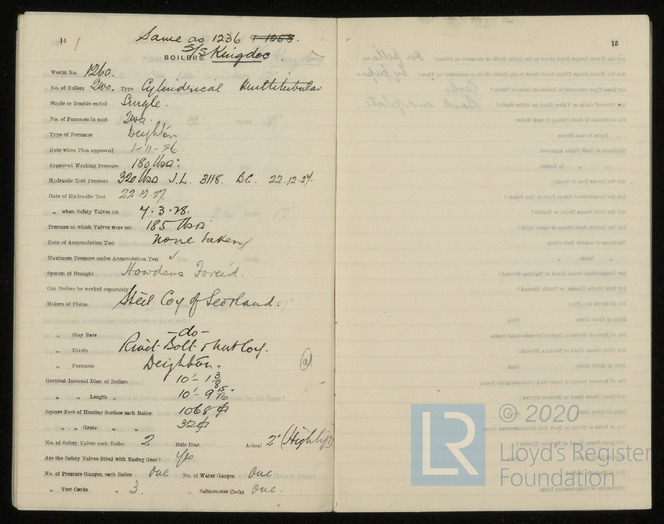 14
Same as 1236 & 1253.
S/S Kingdoc.
BOILERS.
Works No. 1260.
No. of Boilers Two. Type Cylindrical Multitubular
Single or Double-ended Single.
No. of Furnaces in each Two.
Type of Furnaces Deighton
Date when Plan approved 1-11-26
Approved Working Pressure 180 lbs.
Hydraulic Test Pressure 320 lbs J.L. 3118. B.C. 22.12.27.
Date of Hydraulic Test 22.12.27.
„ when Safety Valves set 7.3.28.
Pressure at which Valves were set 185 lbs
Date of Accumulation Test None taken
Maximum Pressure under Accumulation Test
System of Draught Howdens Forced.
Can Boilers be worked separately
Makers of Plates Steel Coy of Scotland.
„ Stay Bars —do—
„ Rivets Rivet Bolt & Nut Coy.
„ Furnaces Deighton.
Greatest Internal Diam. of Boilers 10'-1 3/8
„ „ Length „ 10'-9 15/16"
Square Feet of Heating Surface each Boiler 1068
„ „ Grate „ „ 32
No. of Safety Valves each Boiler 2 Rule Diam. Actual 2" (High lift)
Are the Safety Valves fitted with Easing Gear? Yes
No. of Pressure Gauges, each Boiler One No. of Water Gauges One
„ Test Cocks „ 3 „ Salinometer Cocks One.
15
LR
© 2020
Lloyd's Register
Foundation